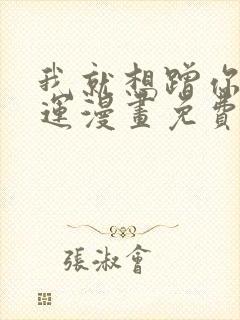 我就想蹭你
運漫畫免費
張淑會